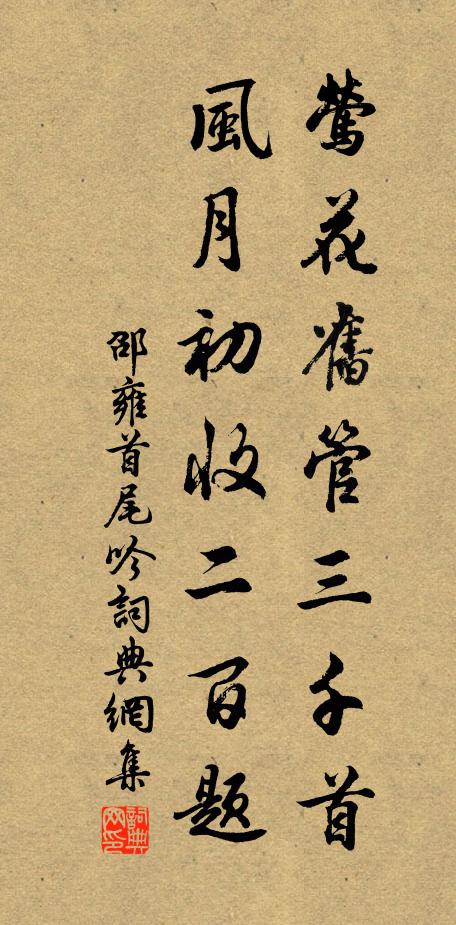 鶯花舊管三千首
風月初收二百題
邵雍首尾吟詞典網集
詞典網印